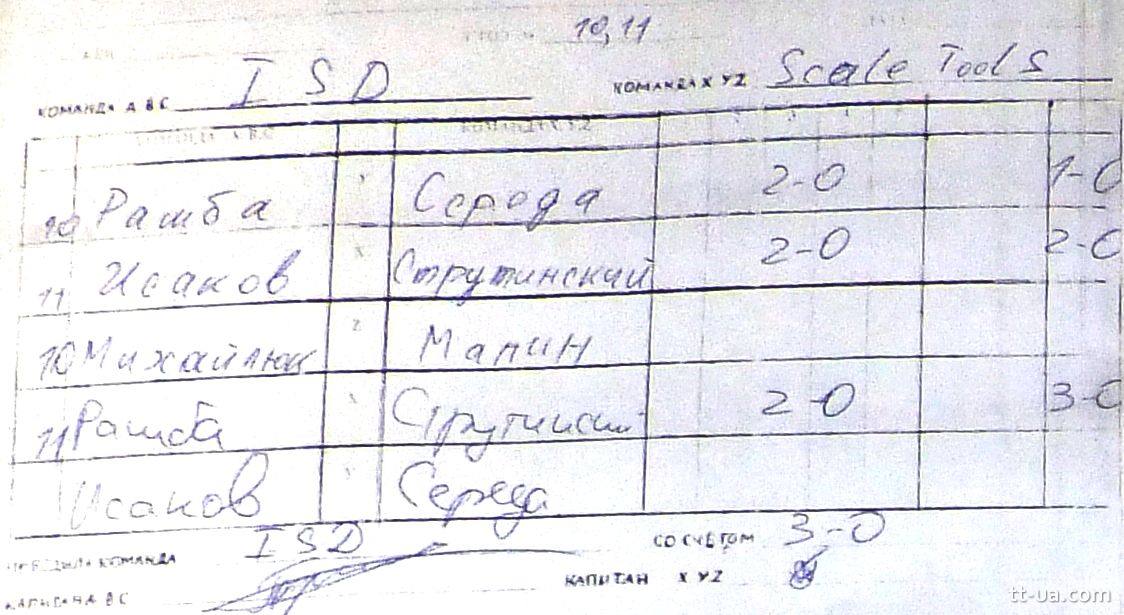 10,11
КОМАНДА A B C I S D КОМАНДА X Y Z Scale Tools
10 Рашба Середа 2-0 1-0
11 Исаков Струтинский 2-0 2-0
10 Михайлюк Малин
11 Рашба 2-0 3-0
Исаков Середа
КОМАНДА ISD СО СЧЕТОМ 3-0
КАПИТАН X Y Z
tt-ua.com